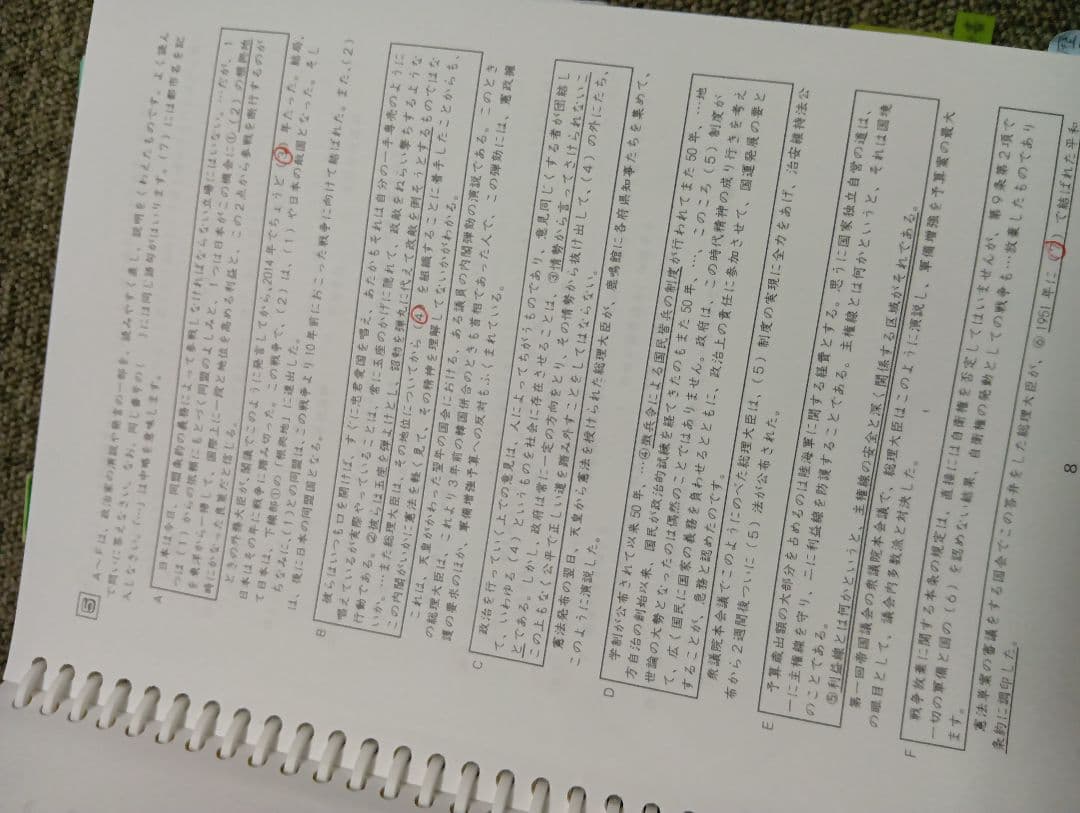 5 A〜Fは、政治家の演説や発言の一部を、読みやすく直し、説明をくわえたものです。よく読ん
で問いに答えなさい。なお、同じ番号の( )には同じ語句がはいります。(7)には都市名を記
入しなさい。(…)は中略を意味します。
A
日本は今日、同盟条約の義務によって参戦しなければならない立場にはいない。…だが、1
つは(1)からの依頼にもとづく同盟のよしみと、1つは日本がこの機会に①(2)の根拠地
を東洋から一掃して、国際上に一段と地位を高める利益と、この2点から参戦を断行するのが
時にかなった良策だと信じる。
ときの外務大臣が、閣議でこのように発言してから、2014年でちょうど(3)年たった。結局、
日本はその年に戦争に踏み切った。この戦争で、(2)は、(1)や日本の敵国となった。そし
て日本は、下線部①の「根拠地」に進出した。
ちなみに、(1)との同盟は、この戦争より10年前におこった戦争に向けて結ばれた。また、(2)
は、後に日本の同盟国となる。
B
彼らはいつも口を開けば、すぐに忠君愛国を唱え、あたかもそれは自分の一手専売のように
唱えているが実際やっていることは、常に玉座のかげに隠れて、政敵をねらい撃ちするような
行動である。②彼らは玉座を弾よけとし、詔勅を弾丸に代えて政敵を倒そうとするものではな
いか。…また総理大臣は、その地位についてから(4)を組織することに着手したことからも、
この内閣がいかに憲法を軽く見て、その精神を理解してないかがわかる。
これは、天皇がかわった翌年の国会における、ある議員の内閣弾劾の演説である。このとき
の総理大臣は、これより3年前の韓国併合のときも首相であった人で、この弾劾には、憲政擁
護の要求のほか、軍備増強予算への反対もふくまれている。
C
政治を行っていく上での意見は、人によってちがうものであり、意見同じくする者が団結し
て、いわゆる(4)というものを社会に存在させることは、③情勢から言ってさけられないこ
とである。しかし、政府は常に一定の方向をとり、その情勢から抜け出して、(4)の外にたち、
この上もなく公平で正しい道を踏み外すことをしてはならない。
憲法発布の翌日、天皇から憲法を授けられた総理大臣が、鹿鳴館に各府県知事たちを集めて、
このように演説した。
D
学制が公布されて以来50年、…④徴兵令による国民皆兵の制度が行われてまた50年、…地
方自治の創始以来、国民が政治的試練を経てきたのもまた50年、…、このころ(5)制度が
世論の大勢となったのは偶然のことではありません。政府は、この時代精神の成り行きを考え
て、広く国民に国家の義務を負わせるとともに、政治上の責任に参加させて、国運発展の要と
することが、急務と認めたのです。
衆議院本会議でこのようにのべた総理大臣は、(5)制度の実現に全力をあげ、治安維持法公
布から2週間後ついに(5)法が公布された。
E
予算歳出額の大部分を占めるのは陸海軍に関する経費とする。思うに国家独立自営の道は、
一に主権線を守り、二に利益線を防護することである。主権線とは何かというと、それは国境
のことである。
⑤利益線とは何かというと、主権線の安全と深く関係する区域がそれである。
第一回帝国議会の衆議院本会議で、総理大臣はこのように演説し、軍備増強を予算の最大
の眼目として、議会内多数派と対決した。
F
戦争放棄に関する本条の規定は、直接には自衛権を否定してはいませんが、第9条第2項で
一切の軍備と国の(6)を認めない結果、自衛権の発動としての戦争も…放棄したものであり
ます。
憲法草案の審議をする国会でこの答弁をした総理大臣が、⑥1951年に(7)で結ばれた平和
条約に調印した。
8